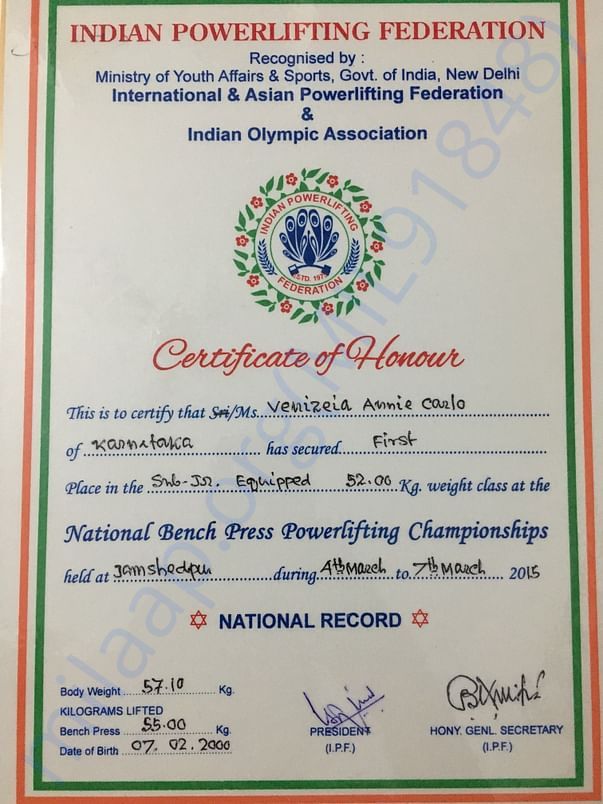 INDIAN POWERLIFTING FEDERATION
Recognised by :
Ministry of Youth Affairs & Sports, Govt. of India, New Delhi
International & Asian Powerlifting Federation
&
Indian Olympic Association
INDIAN POWERLIFTING
FEDERATION
Certificate of Honour
This is to certify that Sri/Ms. Venizeia Annie Carlo
of Karnataka has secured First
Place in the Sub-Jr. Equipped 52.00 Kg. weight class at the
National Bench Press Powerlifting Championships
held at Jamshedpur during 4th March to 7th March 2015
NATIONAL RECORD
Body Weight 57.10 Kg.
KILOGRAMS LIFTED
Bench Press 55.00 Kg.
Date of Birth 07. 02. 2000
PRESIDENT
(I.P.F.)
HONY. GENL. SECRETARY
(I.P.F.)
milaap.org(MIL918848)